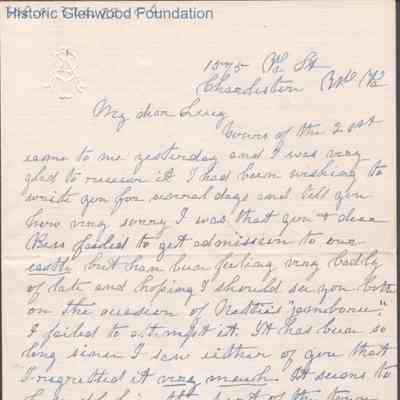 Historic Glenwood Foundation
1575 St
Charleston
My dear Lucy
Yours of the 21st
came to me yesterday and I was very
glad to receive it. I had been wishing to
write you for several days and tell you
how very sorry I was that you & dear
Bess failed to get admission to our
castle but have been feeling very badly
of late and hoping I should see you both
on the occasion of "jamboree".
I failed to attempt it. It has been so
long since I saw either of you that
I regretted it very much. It seems to
the of the town